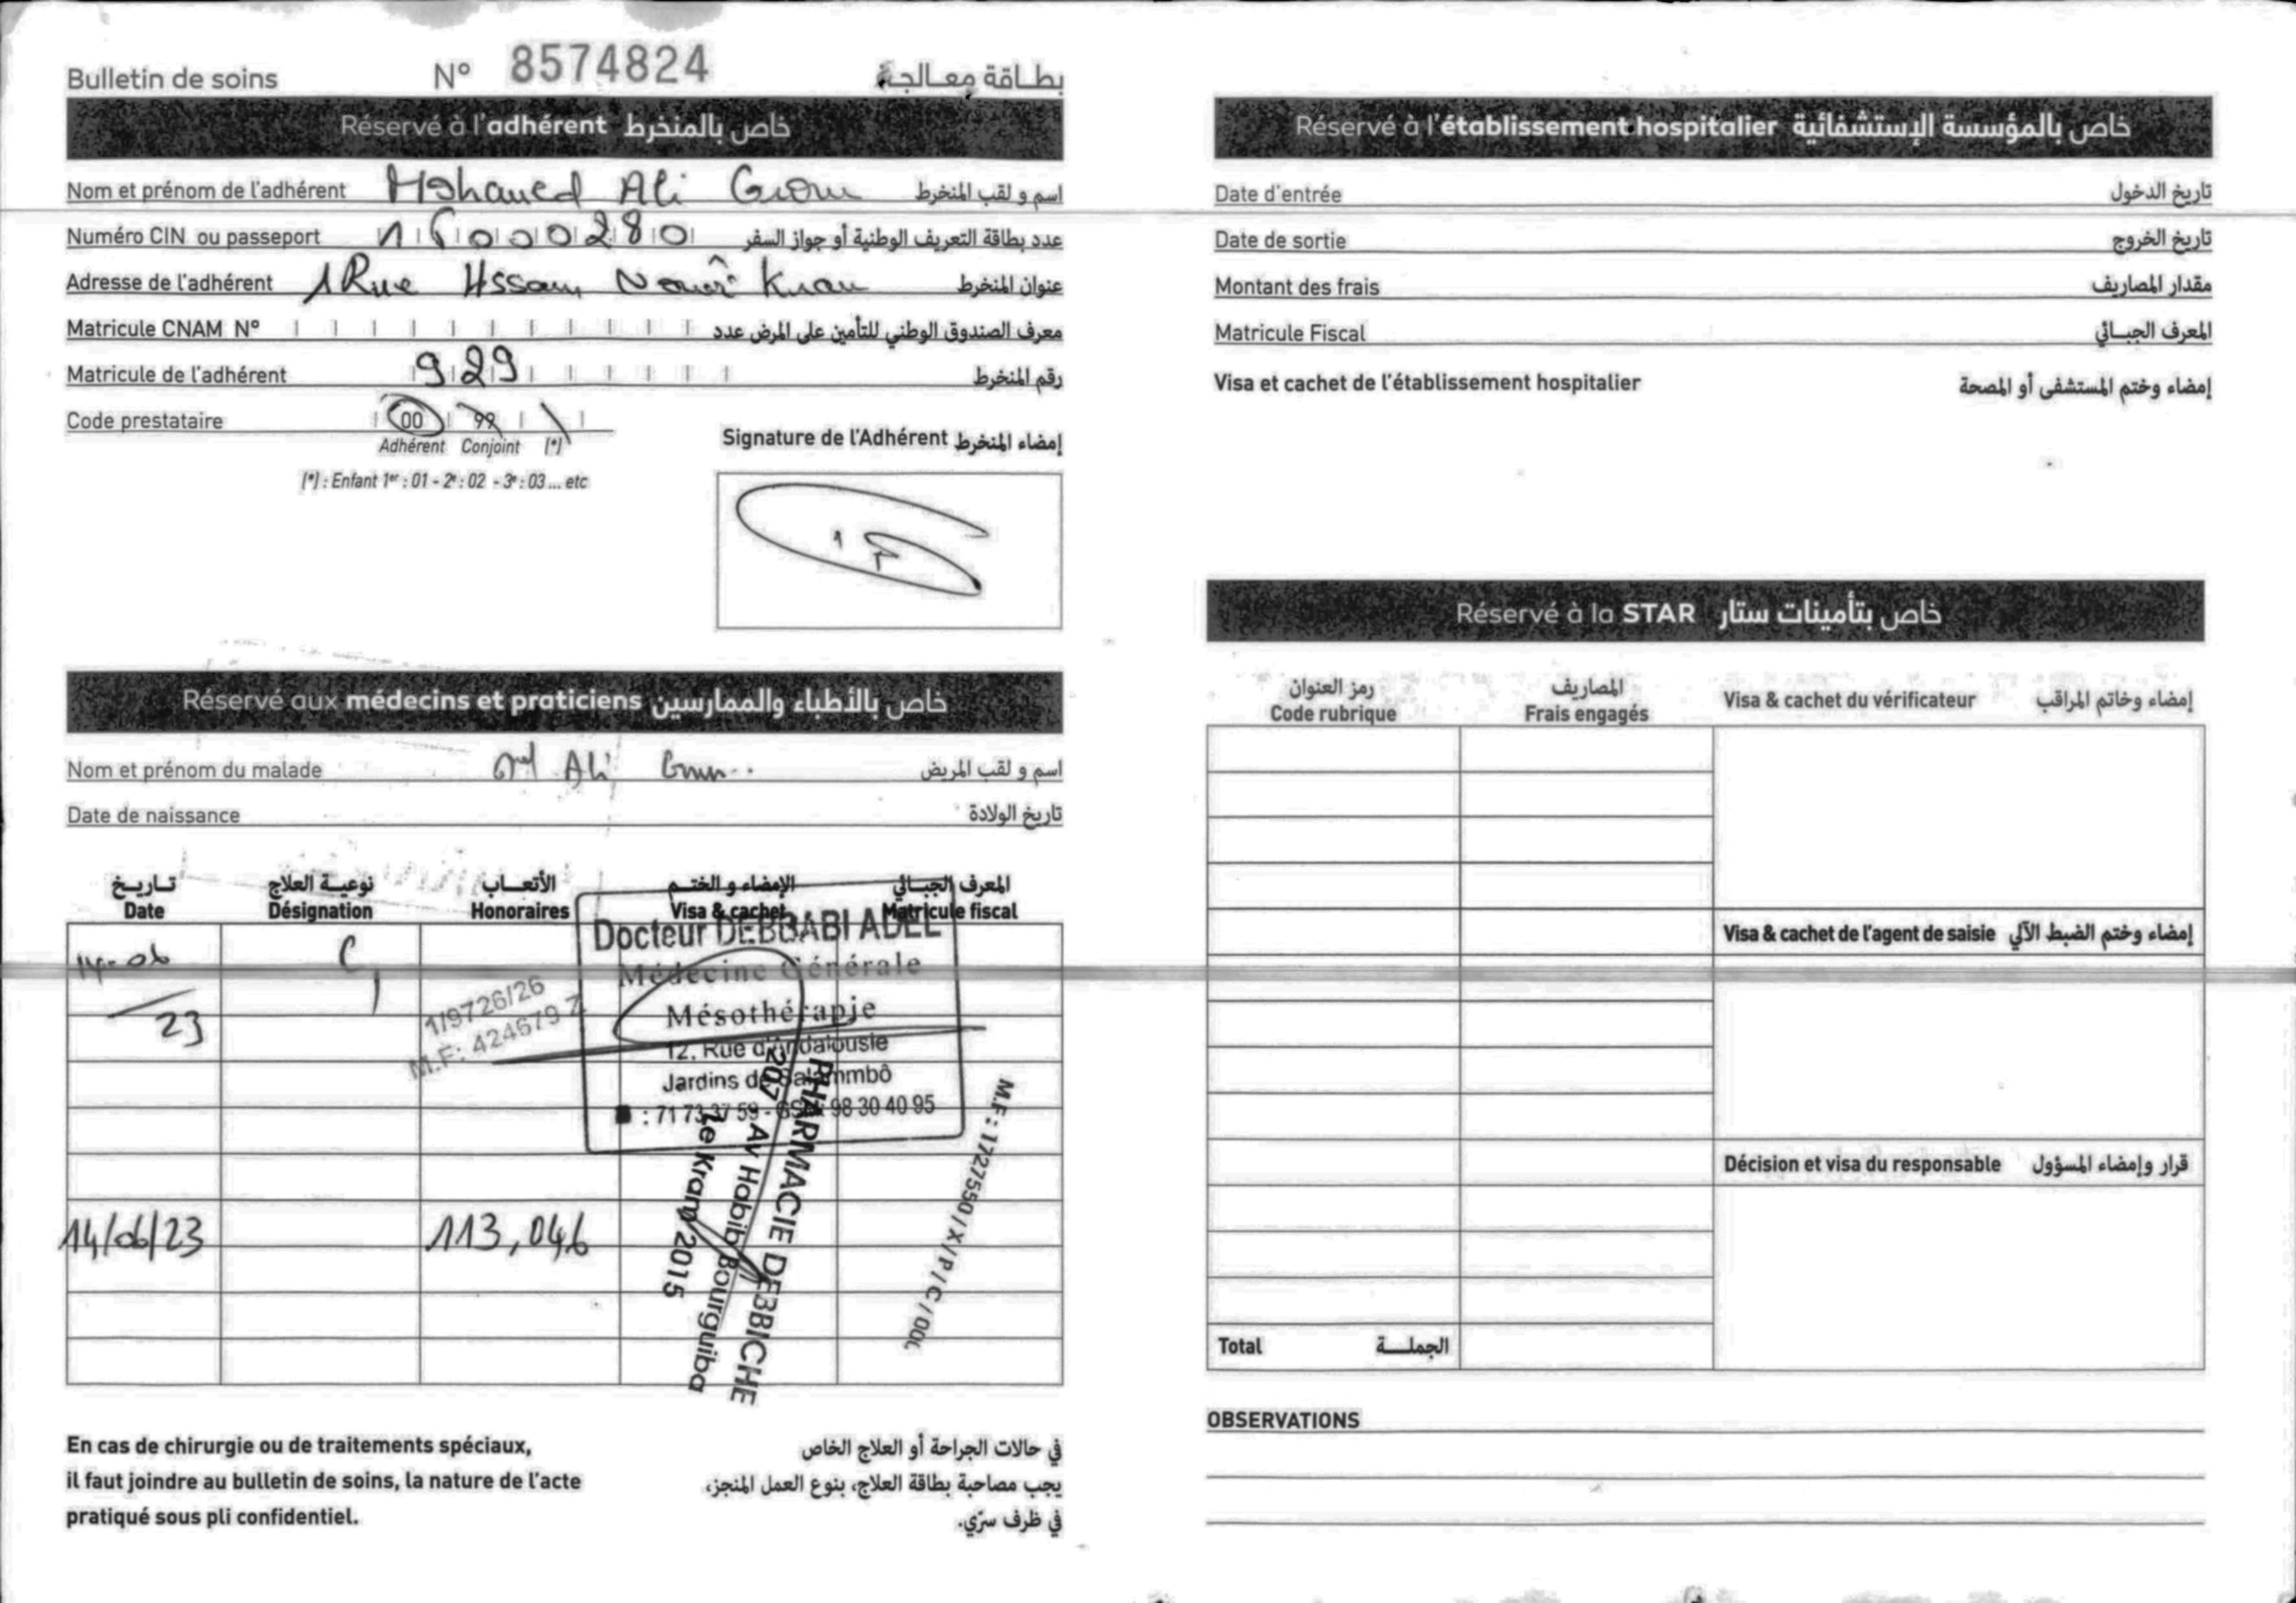 Bulletin de soins N° 8574824 بطاقة معالجة
Réservé à l'adhérent خاص بالمنخرط
Nom et prénom de l'adhérent Mohamed Ali اسم و لقب المنخرط
Numéro CIN ou passeport عدد بطاقة التعريف الوطنية أو جواز السفر
Adresse de l'adhérent 1 Rue عنوان المنخرط
Matricule CNAM N° معرف الصندوق الوطني للتأمين على المرض عدد
Matricule de l'adhérent 929 رقم المنخرط
Code prestataire 00 99
Adhérent Conjoint (*)
(*) : Enfant 1er : 01 - 2e : 02 - 3e : 03 ... etc
Signature de l'Adhérent إمضاء المنخرط
Réservé aux médecins et praticiens خاص بالأطباء والممارسين
Nom et prénom du malade Ali اسم و لقب المريض
Date de naissance تاريخ الولادة
تاريخ نوعية العلاج الأتعاب الإمضاء و الختم المعرف الجبائي
Date Désignation Honoraires Visa & cachet Matricule fiscal
14-06
23
C1
1/9726/26
M.F: 424679 Z
Docteur DEBBABI ADEL
Médecine Générale
Mésothérapie
12, Rue d'Andalousie
Jardins de Salammbô
: 71 73 37 59 - GSM 98 30 40 95
14/06/23 113,046
PHARMACIE DEBBICHE
207 Av Habib Bourguiba
Le Kram 2015
M.F : 1727550/X/P/C/000
En cas de chirurgie ou de traitements spéciaux,
il faut joindre au bulletin de soins, la nature de l'acte
pratiqué sous pli confidentiel.
في حالات الجراحة أو العلاج الخاص
يجب مصاحبة بطاقة العلاج، بنوع العمل المنجز،
في ظرف سرّي.
Réservé à l'établissement hospitalier خاص بالمؤسسة الإستشفائية
Date d'entrée تاريخ الدخول
Date de sortie تاريخ الخروج
Montant des frais مقدار المصاريف
Matricule Fiscal المعرف الجبائي
Visa et cachet de l'établissement hospitalier إمضاء وختم المستشفى أو المصحة
Réservé à la STAR خاص بتأمينات ستار
رمز العنوان المصاريف
Code rubrique Frais engagés Visa & cachet du vérificateur إمضاء وخاتم المراقب
Visa & cachet de l'agent de saisie إمضاء وختم الضبط الآلي
Décision et visa du responsable قرار وإمضاء المسؤول
Total الجملة
OBSERVATIONS